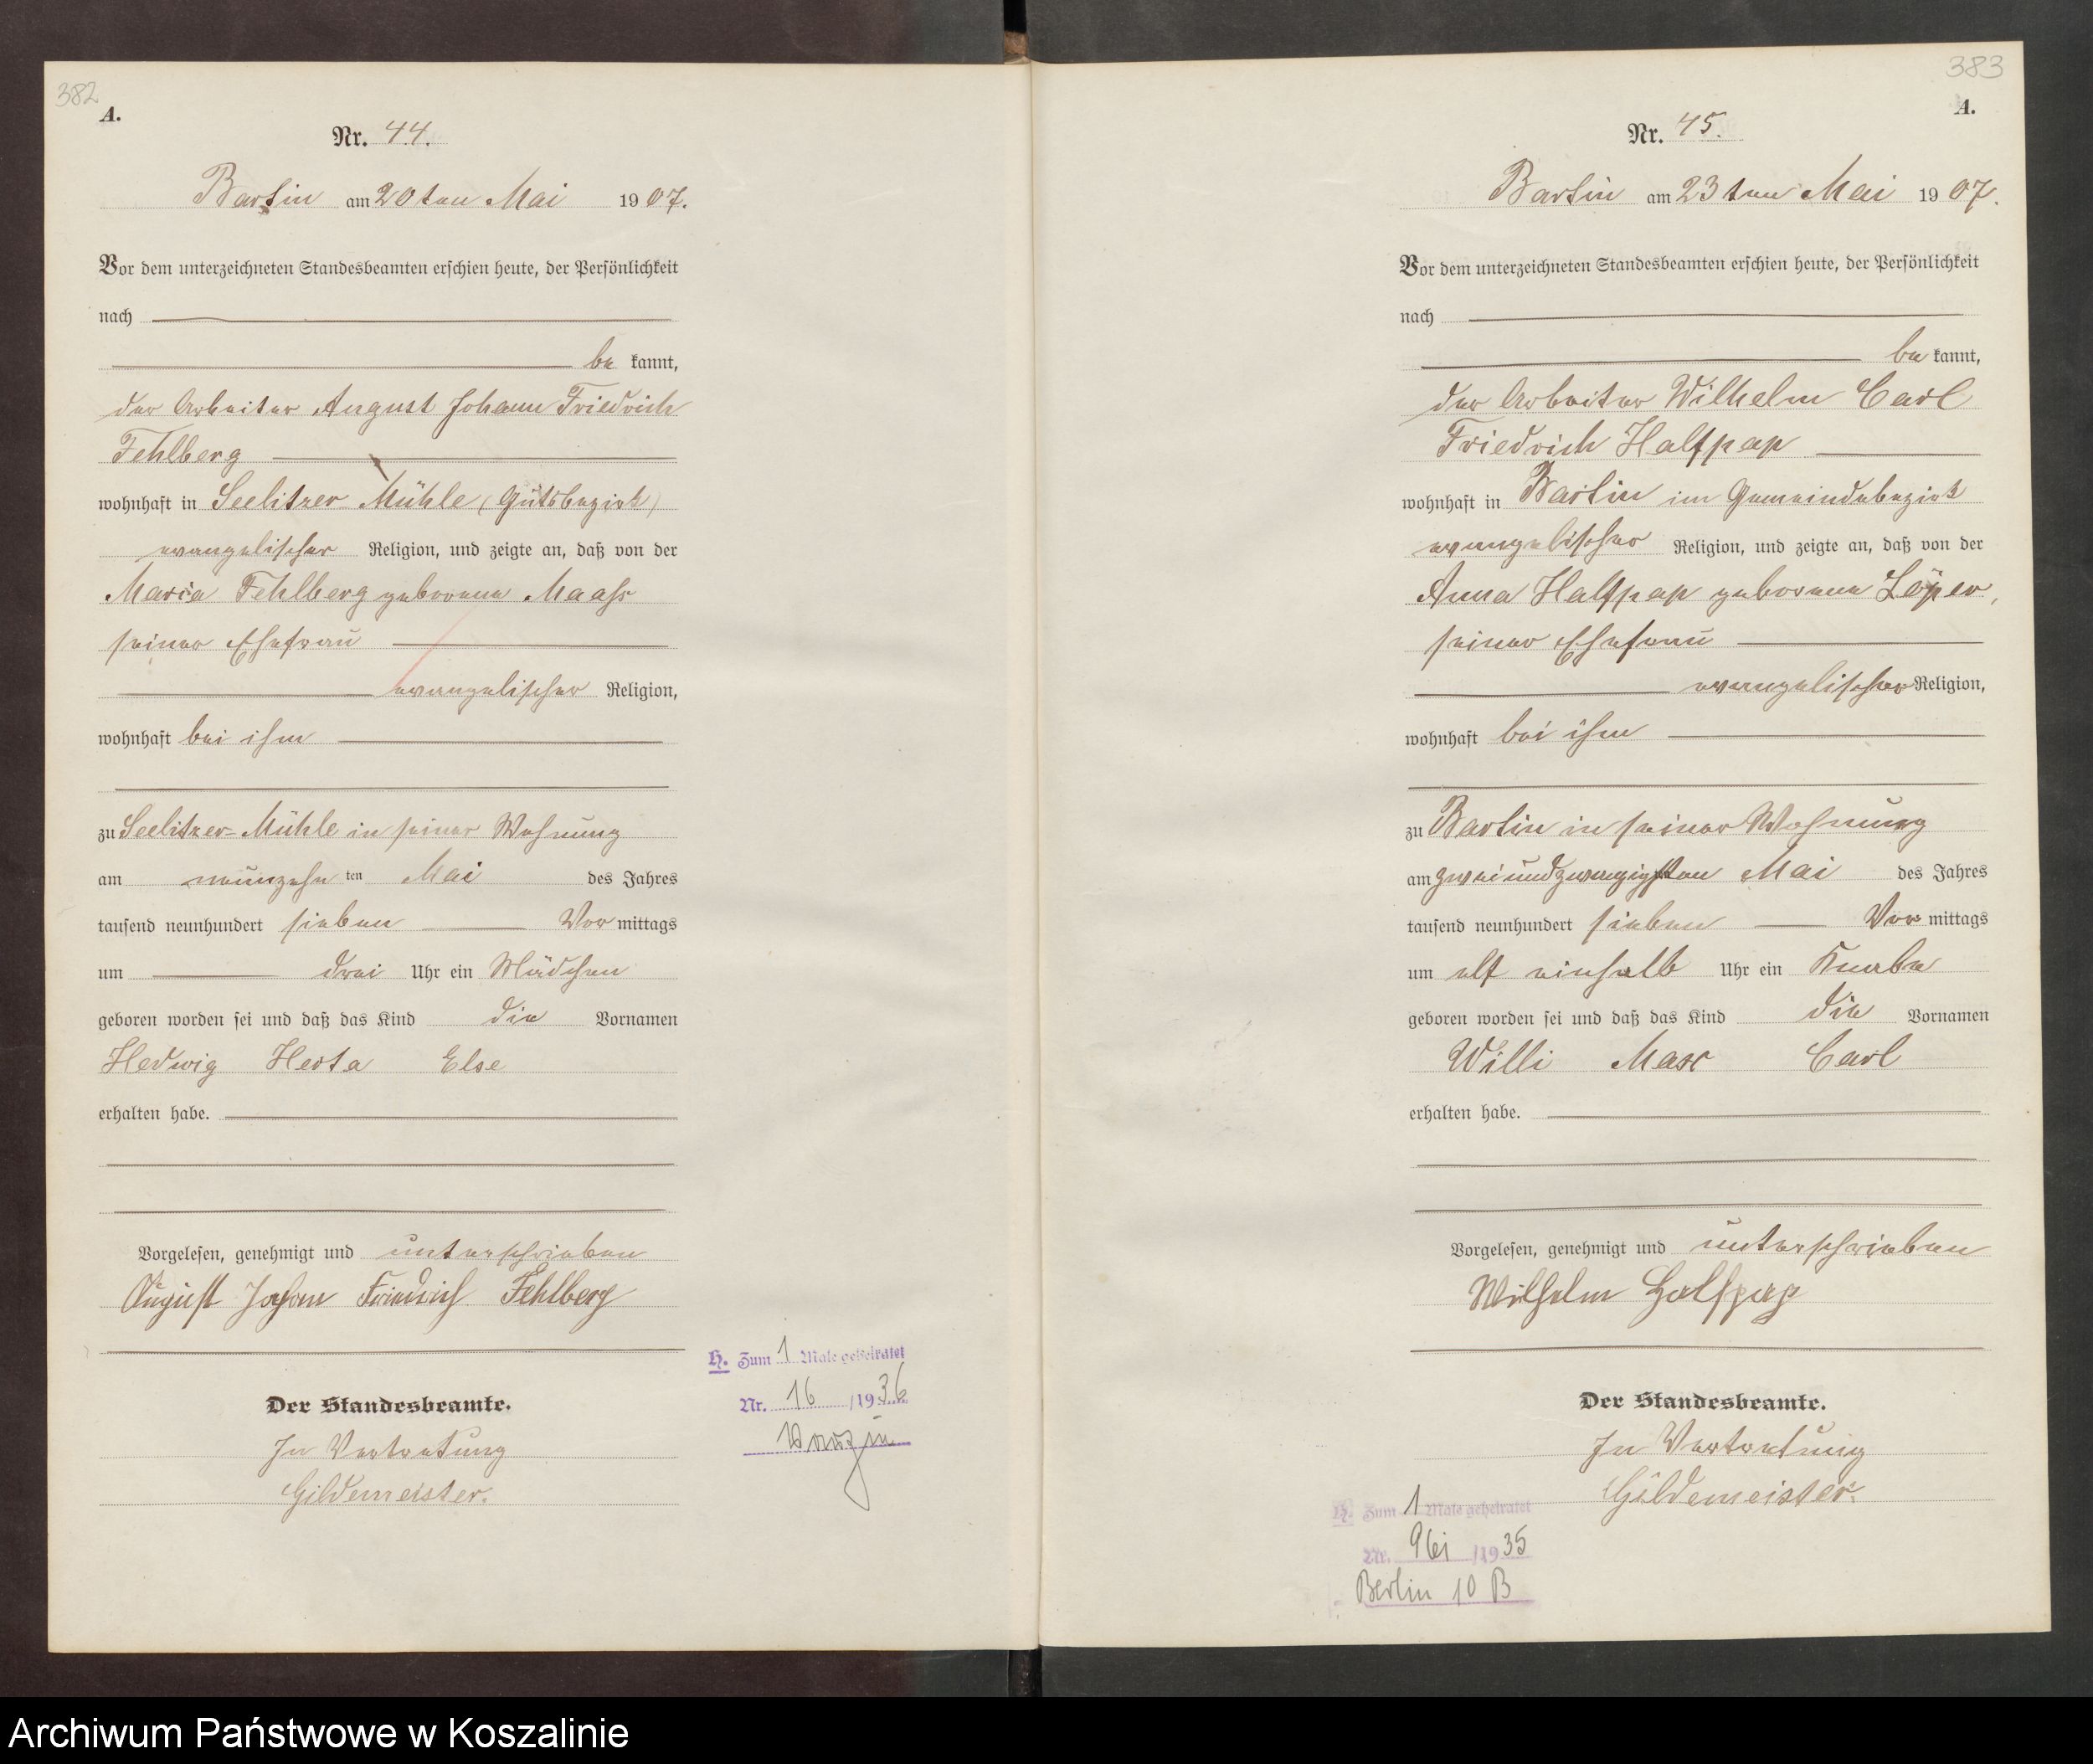 382
A.
Nr. 44.
Bartin am 20ten Mai 1907.
Vor dem unterzeichneten Standesbeamten erschien heute, der Persönlichkeit
nach
be kannt,
der Arbeiter August Johann Friedrich
Fehlberg
wohnhaft in Seelitzer-Mühle (Gutsbezirk)
evangelischer Religion, und zeigte an, daß von der
Maria Fehlberg geborene Maass
seiner Ehefrau
evangelischer Religion,
wohnhaft bei ihm
zu Seelitzer-Mühle in seiner Wohnung
am neunzehn ten Mai des Jahres
tausend neunhundert sieben Vor mittags
um drei Uhr ein Mädchen
geboren worden sei und daß das Kind die Vornamen
Hedwig Herta Else
erhalten habe.
Vorgelesen, genehmigt und unterschrieben
August Johann Friedrich Fehlberg
H. Zum 1 Male geheiratet
Nr. 16 /1936
Varzin
Der Standesbeamte.
In Vertretung
Gildemeister.
383
A.
Nr. 45.
Bartin am 23ten Mai 1907.
Vor dem unterzeichneten Standesbeamten erschien heute, der Persönlichkeit
nach
be kannt,
der Arbeiter Wilhelm Carl
Friedrich Halfpap
wohnhaft in Bartin im Gemeindebezirk
evangelischer Religion, und zeigte an, daß von der
Anna Halfpap geborene Löper,
seiner Ehefrau
evangelischer Religion,
wohnhaft bei ihm
zu Bartin in seiner Wohnung
am zweiundzwanzigsten Mai des Jahres
tausend neunhundert sieben Vor mittags
um elf einhalb Uhr ein Knabe
geboren worden sei und daß das Kind die Vornamen
Willi Max Carl
erhalten habe.
Vorgelesen, genehmigt und unterschrieben
Wilhelm Halfpap
Der Standesbeamte.
In Vertretung
Gildemeister.
H. Zum 1 Male geheiratet
Nr. /1935
Berlin 10 B
Archiwum Państwowe w Koszalinie